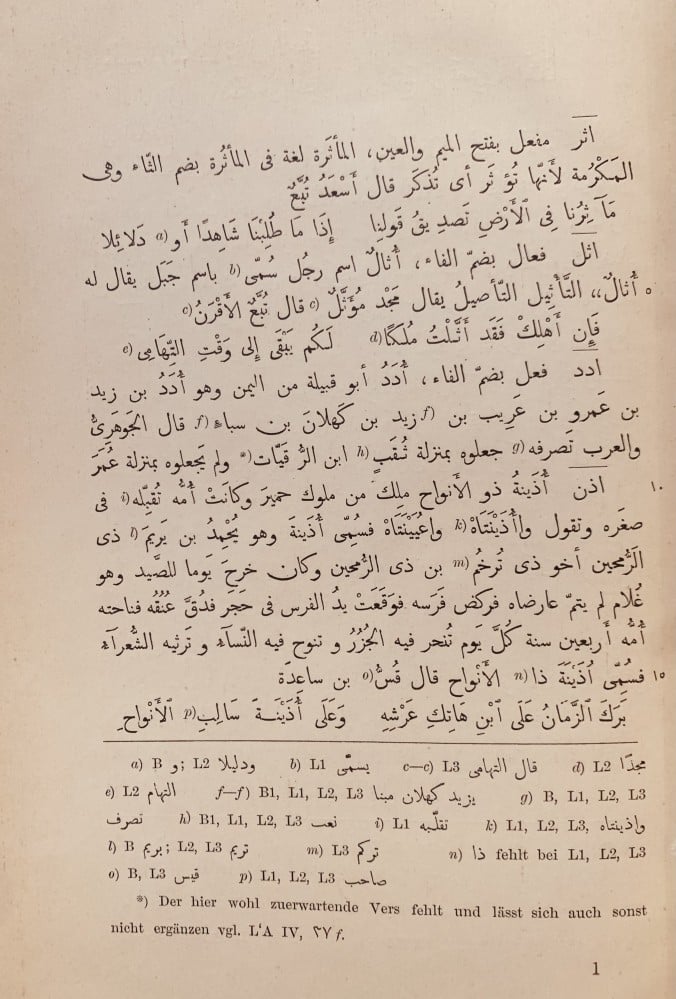 اثر مفعل بفتح الميم والعين، المأثَرة لغة فى المأثُرة بضم الثّاء وهى
المَكْرُمة لأَنّها تُؤ ثَر أى تُذكَر قال أَسْعَدُ تُبَّعٌ
مَآ ثِرُنا فِى ٱلْأَرْضِ تَصدِ يقُ قَولِنا إِذَا مَا طُلِبْنَا شَاهِدًا أَو (a دَلائِلا
اثل فعال بضمّ الفاء، أُثالٌ اسم رجُل سُمّى (b باسم جَبَل يقال له
٥ أُثالٌ،، التَّأثِيل التّأصيلُ يقال مَجْد مُؤَثَّلٌ (c قال تُبَّعٌ الأَقْرَنُ (c
فَإِن أَهْلِكْ فَقَد أَثَّلْتُ مُلكًا (d لَكُم يَبْقَى إِلى وَقْتِ التِّهَامِى (e
ادد فعل بضمّ الفاء، أُدَدُ أبو قبيلة من اليمن وهو أُدَدُ بن زيد
بن عَمرو بن عَرِيب بن (f زيد بن كَهلانَ بن سباء (f قال الجَوهَرِىُّ
والعرب تَصرفه (g جعلوه بمنزلة ثُقَبٍ (h ابن الرُّ قَيّات (* ولم يَجعلوه بمنزلة عُمَرَ
١٠ اذن أُذَينةُ ذو الأَنواح مِلك من ملوك حميرَ وكانَتْ أُمُّه تُقبِّله (i فى
صغَره وتقول واأُذَيْنَتَاهْ (k واعُيَيْنَتَاهْ فسُمِّى أُذَينَة وهو يُحْمِدُ بن يَرِيمَ (l ذى
الرُّمحين أخو ذى تُرخُم (m بن ذى الرُّمحين وكان خرجَ يَوما للصَّيد وهو
غُلام لم يتمّ عارضاه فركض فَرَسه فوَقَعَتْ يدُ الفرس فى حَجَر فدُقَّ عُنُقُه فناحته
أُمُّه أَربعين سنة كُلَّ يَوم تُنحر فيه الجُزُرُ و تنوح فيه النّسآء و ترَثيه الشُّعرآء
١٥ فسُمِّى أُذَينَةَ ذا (n الأَنْواح قال قُسُّ (o بن ساعِدَة
بَرَكَ ٱلزَّمَانُ عَلَى ٱبْنِ هَاتِكِ عَرْشِهِ وَعَلَى أُذَيْنَةَ سَالِبِ (p ٱلأَنْواحِ
a) B و; L2 ودليلا b) L1 يسمّى c—c) L3 قال التهامى d) L2 مجدًا
e) L2 التهام f—f) B1, L1, L2, L3 يزيد كهلان مبنا g) B, L1, L2, L3
تصرف h) B1, L1, L2, L3 نعت i) L1 تقلّبه k) L1, L2, L3, واذينتاه
l) B بريم; L2, L3 تريم m) L3 تركم n) ذا fehlt bei L1, L2, L3
o) B, L3 قيس p) L1, L2, L3 صاحب
*) Der hier wohl zuerwartende Vers fehlt und lässt sich auch sonst
nicht ergänzen vgl. L'A IV, ٣٧ f.
1